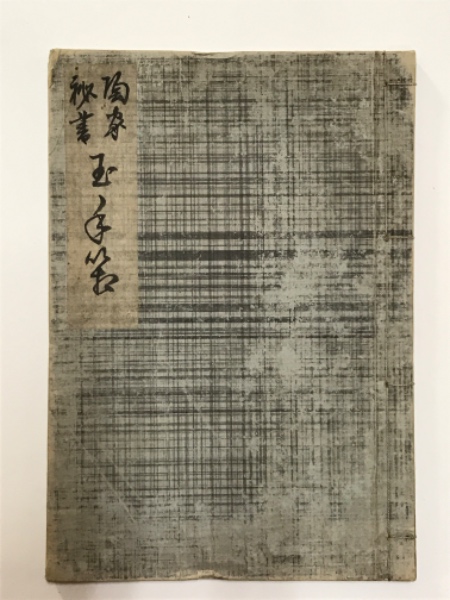 陶家
秘書
玉手箱